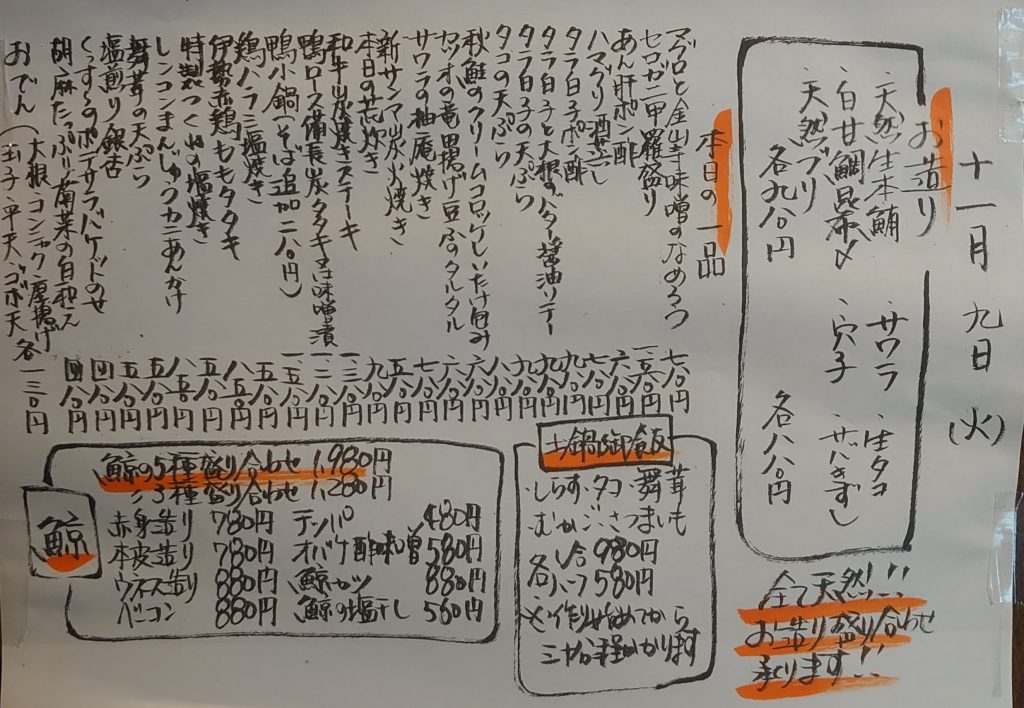 十一月 九日 (火)
お造り
、天然生本鮪
、白甘鯛昆布〆
、天然ブリ
各九八〇円
、サワラ 、生タコ
、穴子 、サバきずし
各八八〇円
全て天然!!
お造り盛り合わせ
承ります!!
本日の一品
マグロと金山寺味噌のなめろう 七八〇円
セコガニ甲羅盛り
あん肝ポン酢
ハマグリ酒蒸し
タラ白子ポン酢
タラ白子と大根のバター醤油ソテー
タラ白子の天ぷら
タコの天ぷら
秋鮭のクリームコロッケしいたけ包み
カツオの竜田揚げ豆ふのタルタル
サワラの柚庵焼き
新サンマ炭火焼き
本日の荒炊き
和牛炭焼きステーキ
鴨ロース備長炭タタキ又は味噌漬
鴨小鍋(そば追加二八〇円)
鶏ハラミ塩焼き
伊勢赤鶏ももタタキ
特製つくねの塩焼き
レンコンまんじゅうカニあんかけ
舞茸の天ぷら
塩煎り銀杏
くんすうのポテサラバゲットのせ
胡麻たっぷり菊菜の白和え
おでん(大根、コンニャク、厚揚げ
玉子、平天、ゴボ天 各一三〇円
土鍋御飯
、しらす、タコ、舞茸
、むかご、さつまいも
各 1合 980円
ハーフ 580円
※作り始めてから
三十分程かかります
鯨
鯨の5種盛り合わせ 1,980円
〃 3種盛り合わせ 1,280円
赤身造り 780円 テッパ 480円
本皮造り 780円 オバケ酢味噌 580円
ウネス造り 880円 鯨カツ 880円
ベーコン 880円 鯨の塩干し 560円